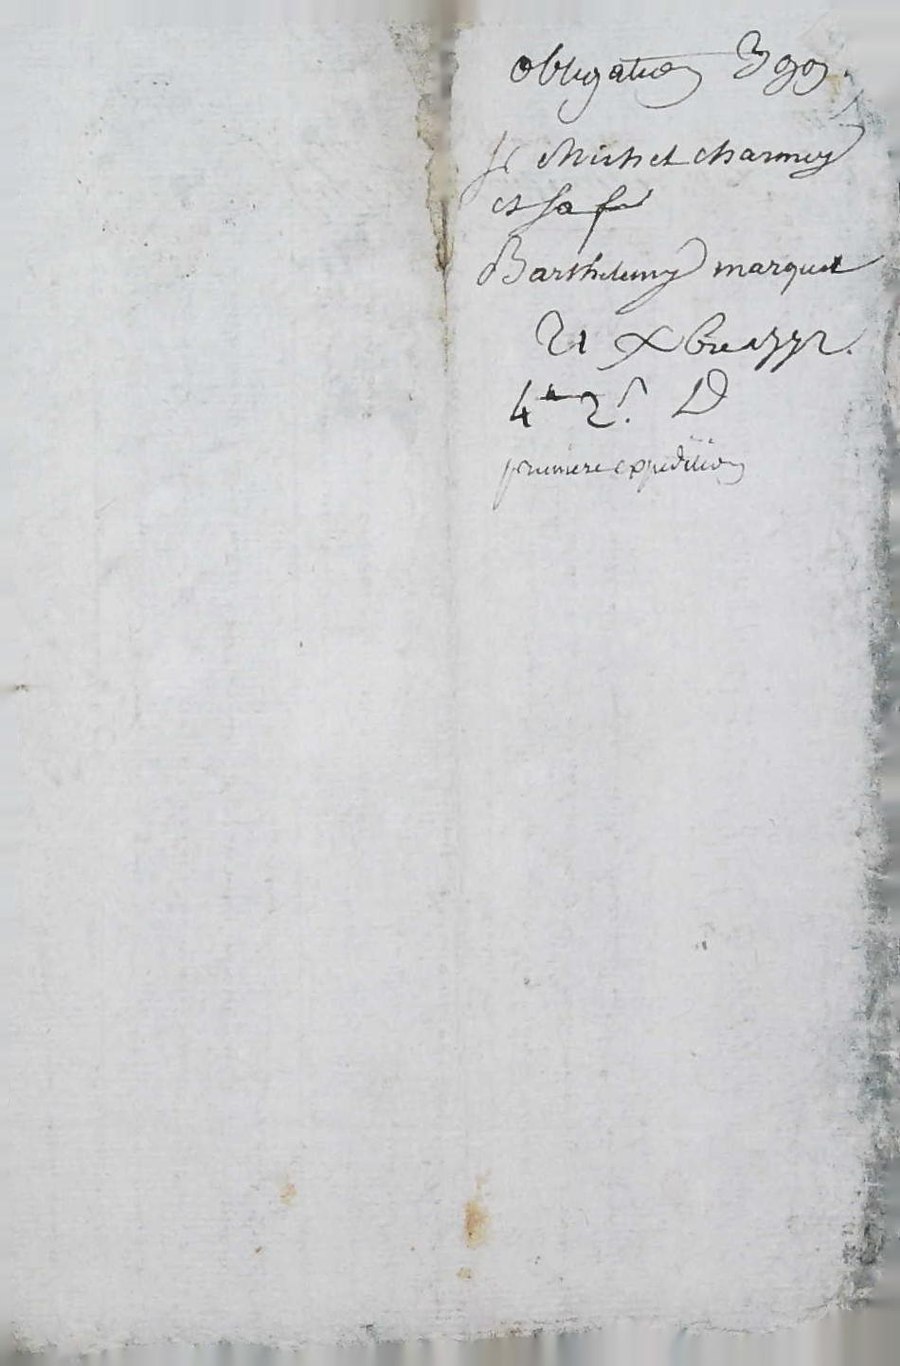 obligation
Sr Michel charmey
et sa fe
Barthelemy marquet
21 Xbre 1772.
4 2s. D
premiere expedition